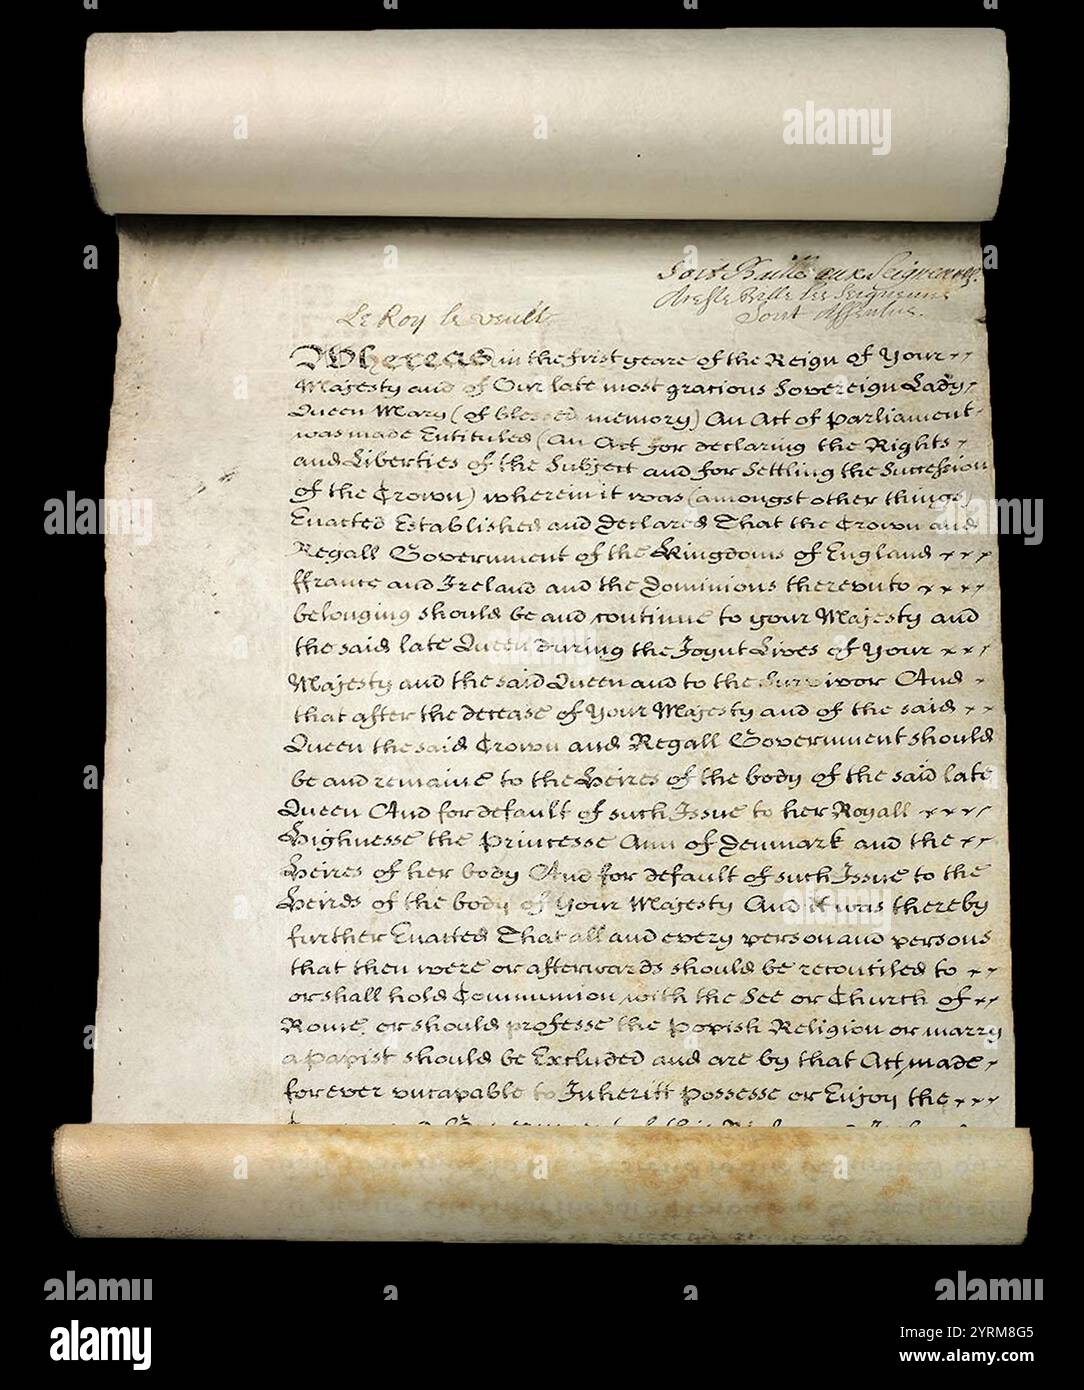 Soit Baillé aux Seigneurs.
A ceste Bille les Seigneurs
Sont Assentus.
Le Roy le veult.
Whereas in the first yeare of the Reign of Your
Majesty and of Our late most gracious Sovereign Lady
Queen Mary (of blessed memory) An Act of Parliament
was made Entituled (An Act for declaring the Rights
and Liberties of the Subject and for Settling the Succession
of the Crown) wherein it was (amongst other things)
Enacted Established and Declared That the Crown and
Regall Government of the Kingdoms of England
ffrance and Ireland and the Dominions thereunto
belonging should be and continue to your Majesty and
the said late Queen during the Joynt Lives of Your
Majesty and the said Queen and to the Survivor And
that after the decease of Your Majesty and of the said
Queen the said Crown and Regall Government should
be and remaine to the Heires of the body of the said late
Queen And for default of such Issue to her Royall
Highnesse the Princesse Ann of Denmark and the
Heires of her body And for default of such Issue to the
Heirs of the body of Your Majesty And it was thereby
further Enacted That all and every person and persons
that then were or afterwards should be reconciled to
or shall hold Communion with the See or Church of
Rome or should professe the Popish Religion or marry
a Papist should be Excluded and are by that Act made
forever uncapable to Inheritt Possesse or Enjoy the
alamy
Image ID: 2YRM8G5
www.alamy.com